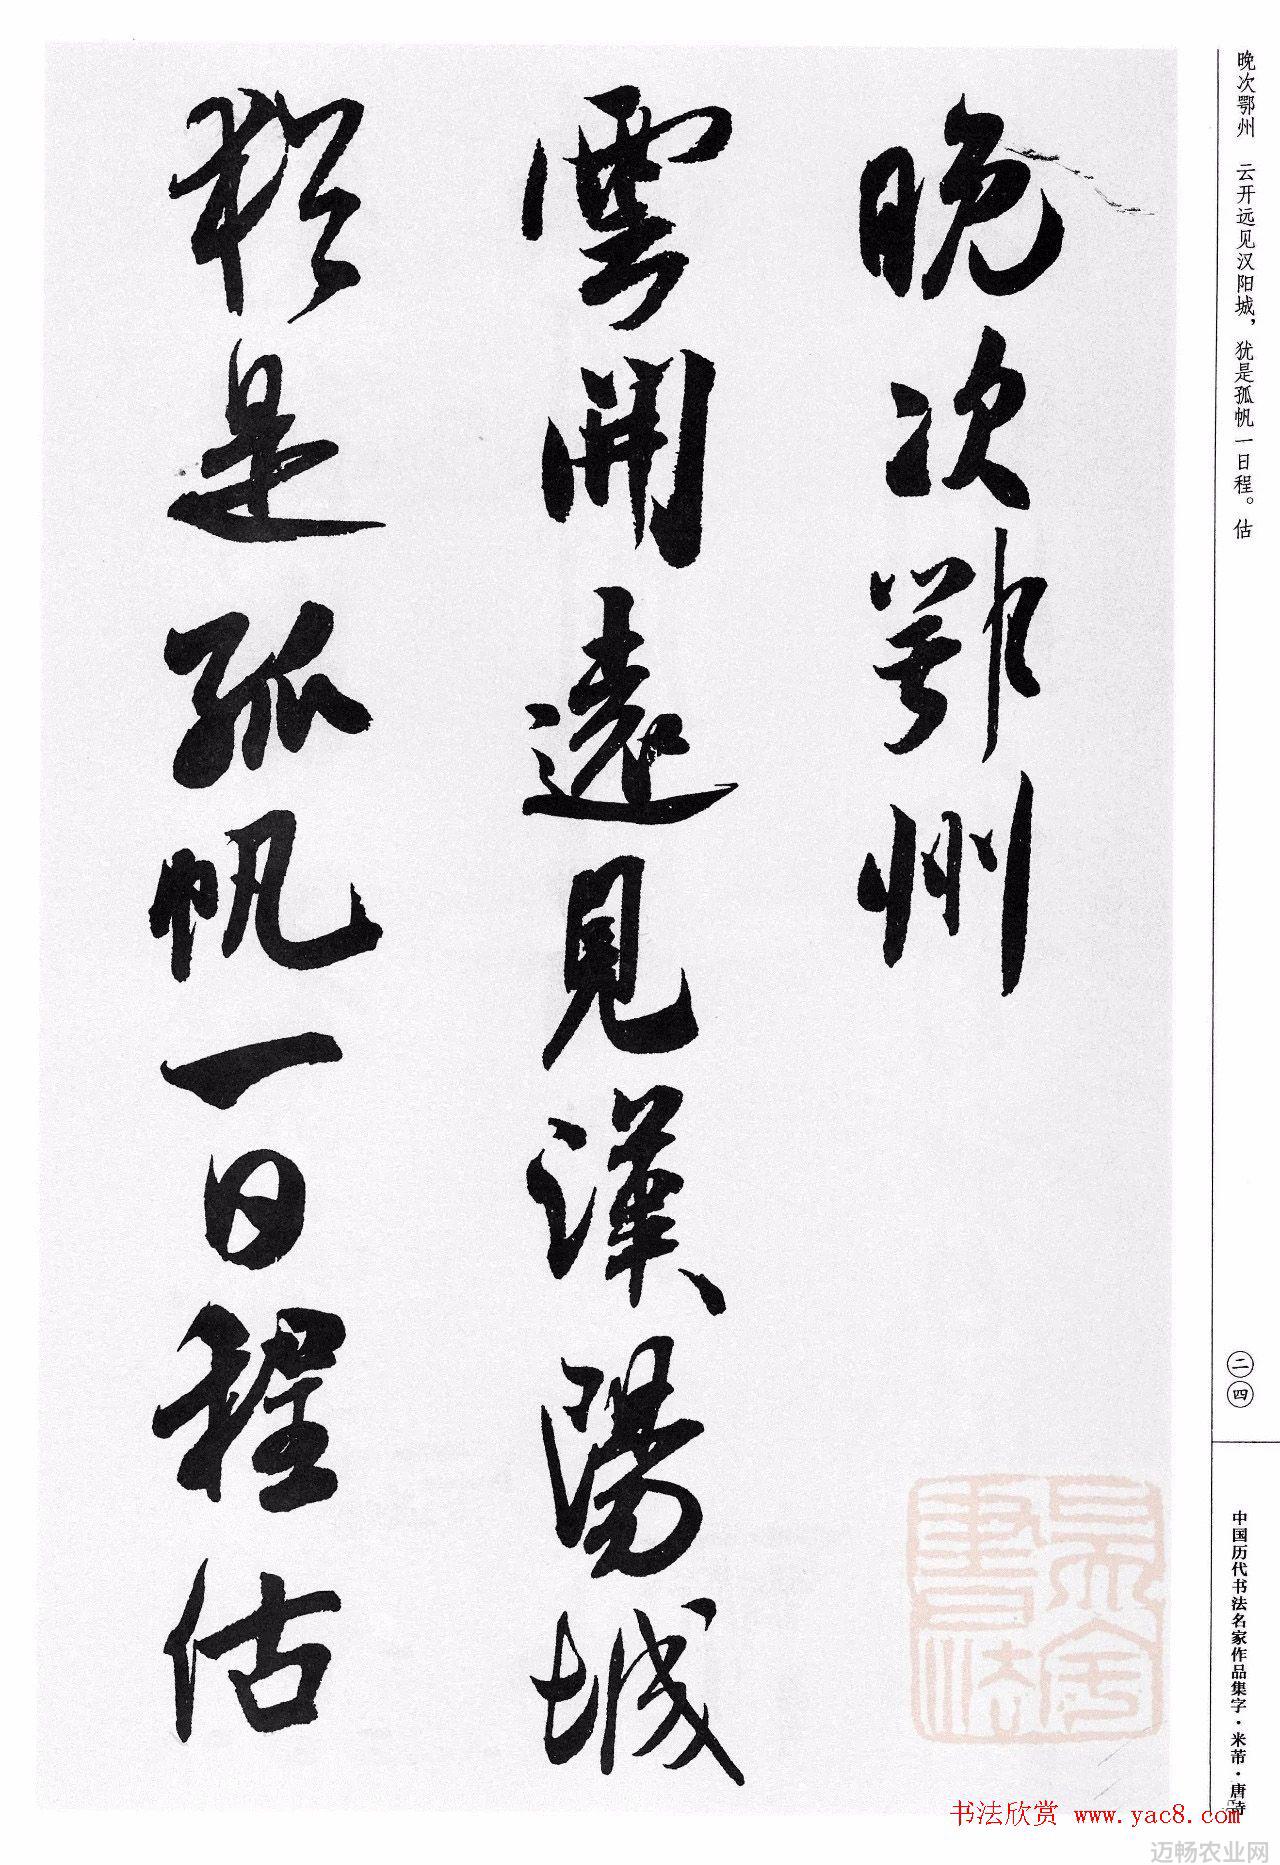 晚次鄂州
雲開遠見漢陽城
猶是孤帆一日程估
晚次鄂州 云开远见汉阳城，犹是孤帆一日程。估
二四
中国历代书法名家作品集字·米芾·唐诗
书法欣赏 www.yac8.com
迈畅农业网